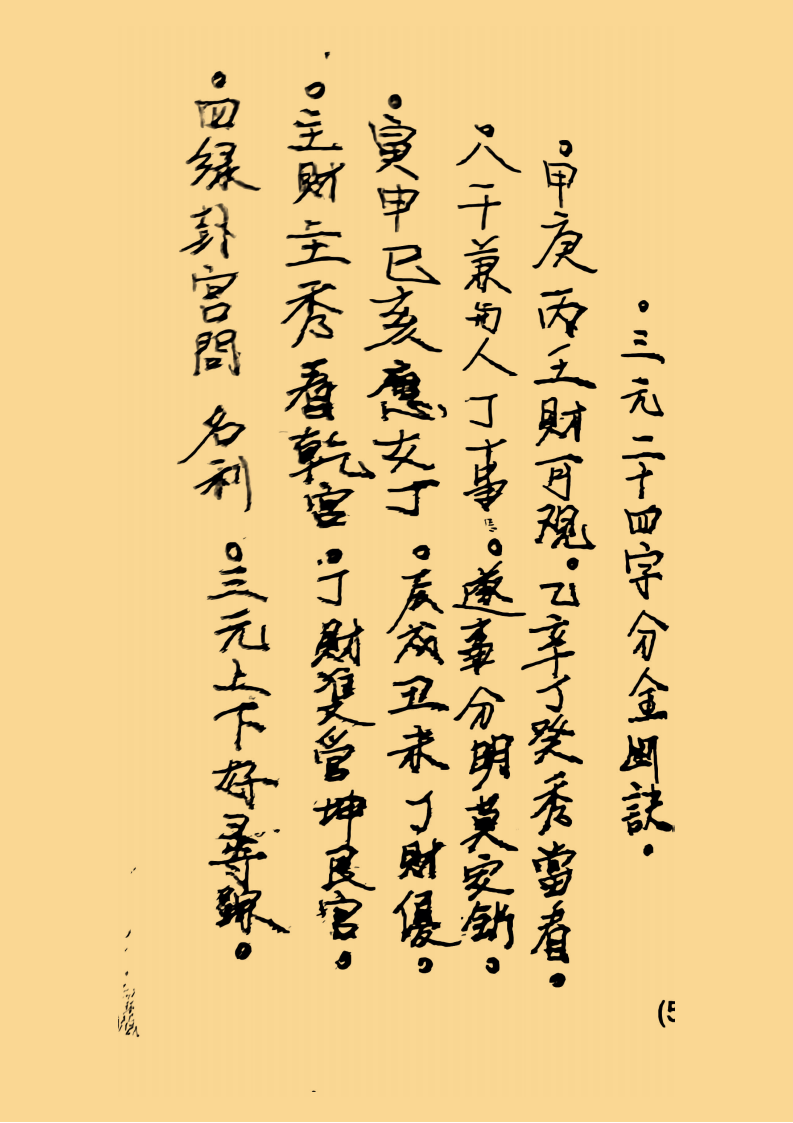 。三元二十四字分金四訣。
。甲庚丙壬財可观。乙辛丁癸秀當看。
。八干兼向人丁事。遂事分明莫安斷。
。寅申巳亥應女丁。辰戌丑未丁財優。
。主財主秀看乾宮。丁財雙管坤艮宮。
。四緑卦宮問名利。三元上下好尋踪。
(5